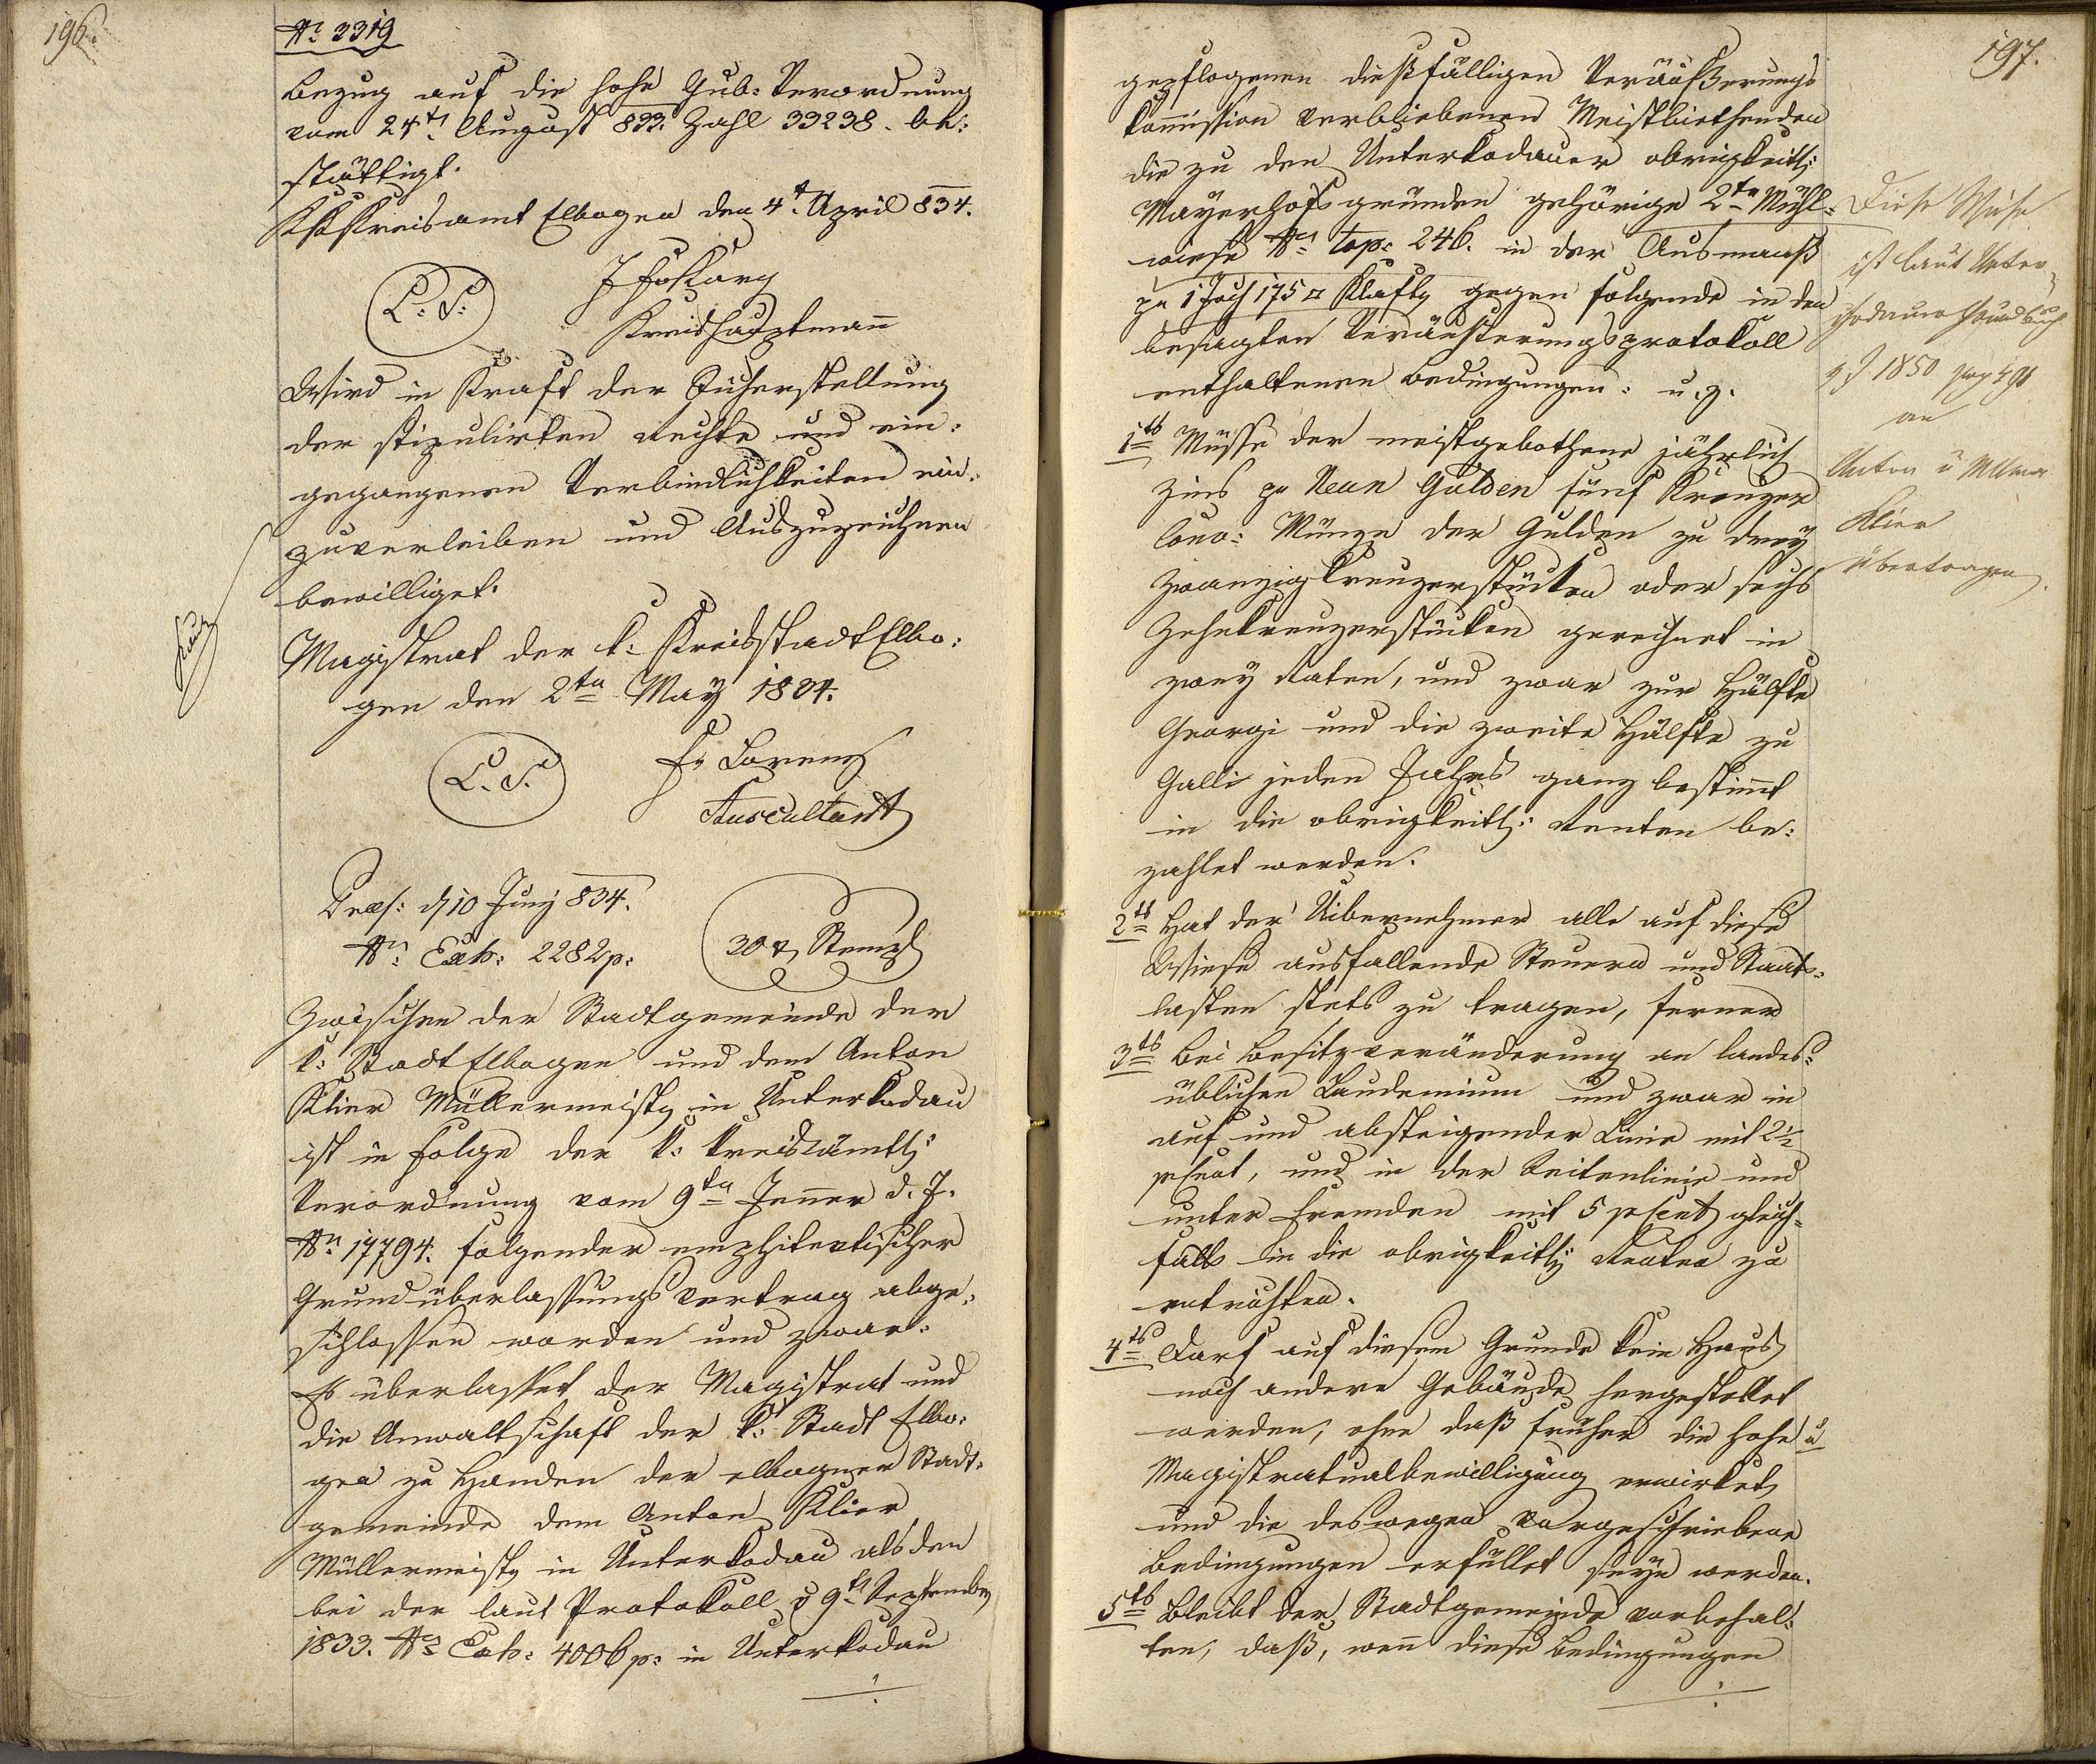 196.
Nr. 3319
Bezug auf die hohe Gub: Verordnung
vom 24t. August 833. Zahl 39238. be:
stättigt.
KK Kreisamt Elbogen den 4t. April 834.
L. S.
Kreishauptmann
Wird in Kraft der Sicherstellung
der stipulirten Rechte und ein:
gegangenen Verbindlichkeiten ein:
zuverleiben und Auszuzeichnen
bewilliget.
Magistrat der k: Kreisstadt Elbo:
gen den 2ten May 1834.
L. S.
Fr Lorenz
Auscultant
Praes: d 10 Juny 834.
Nr. Exh: 2282 p:
30 x Stempl
Zwischen der Stadtgemeinde der
k: Stadt Elbogen und dem Anton
Klier Müllermeister in Unterkodau
ist in Folge der k: kreisämtl:
Verordnung vom 9ten Jenner d. J.
Nr. 17794. folgender emphiteutischer
Grundüberlassungs Vertrag abge:
schlossen worden und zwar:
Es überlasset der Magistrat und
die Anwaltschaft der k: Stadt Elbo:
gen zu Handen der elbogner Stadt:
gemeinde dem Anton Klier
Müllermeister in Unterkodau als den
bei der laut Protokoll v 9t. September
1833. Nr. Exh: 4006 p: in Unterkodau
197.
gepflogenen dießfälligen Veräußerungs
Kommission verbliebenen Meistbiethenden
die zu den Unterkodauer obrigkeitl:
Mayerhofsgründen gehörige 2te Mühl:
wiese Nr. top: 246. in der Ausmaaß
pr 1 Joch 175 □ Klafter gegen folgende in den
besagten Veräußerungsprotokoll
enthaltenen Bedingungen: u. z.
1tes Müsse der meistgebothene jährlich
Zins pr Neun Gulden fünf Kreuzer
Conv: Münze der Gulden zu drey
Zwanzigkreuzerstücken oder sechs
Zehnkreuzerstücken gerechnet in
zwey Raten, und zwar zur Hälfte
Georgi und die zweite Hälfte zu
Galli jeden Jahrs ganz bestimmt
in die obrigkeitl: Renten be:
zahlet werden.
2tes Hat der Uibernehmer alle auf diese
Wiese ausfallende Steuern und Staats:
lasten stets zu tragen, ferner
3tes Bei Besitzveränderung an landes:
üblichen Laudemium und zwar in
auf und absteigender Linie mit 2½
pCent, und in der Seitenlinie und
unter Fremden mit 5 pCent gleich:
falls in die obrigkeitl: Renten zu
entrichten.
4tes Darf auf diesem Grunde kein Haus
noch andere Gebäude hergestellet
werden, ohne daß früher die hohe u
Magistratualbewilligung erwirket
und die deswegen vorgeschriebene
Bedingungen erfüllet seyn werden.
5tes Bleibt der Stadtgemeinde vorbehal:
ten, daß, wenn diese Bedingungen
Diese Wiese
ist laut Unter
kodauer Grundbuch
1850 pag 491
an
Anton u
Klier
übertragen.